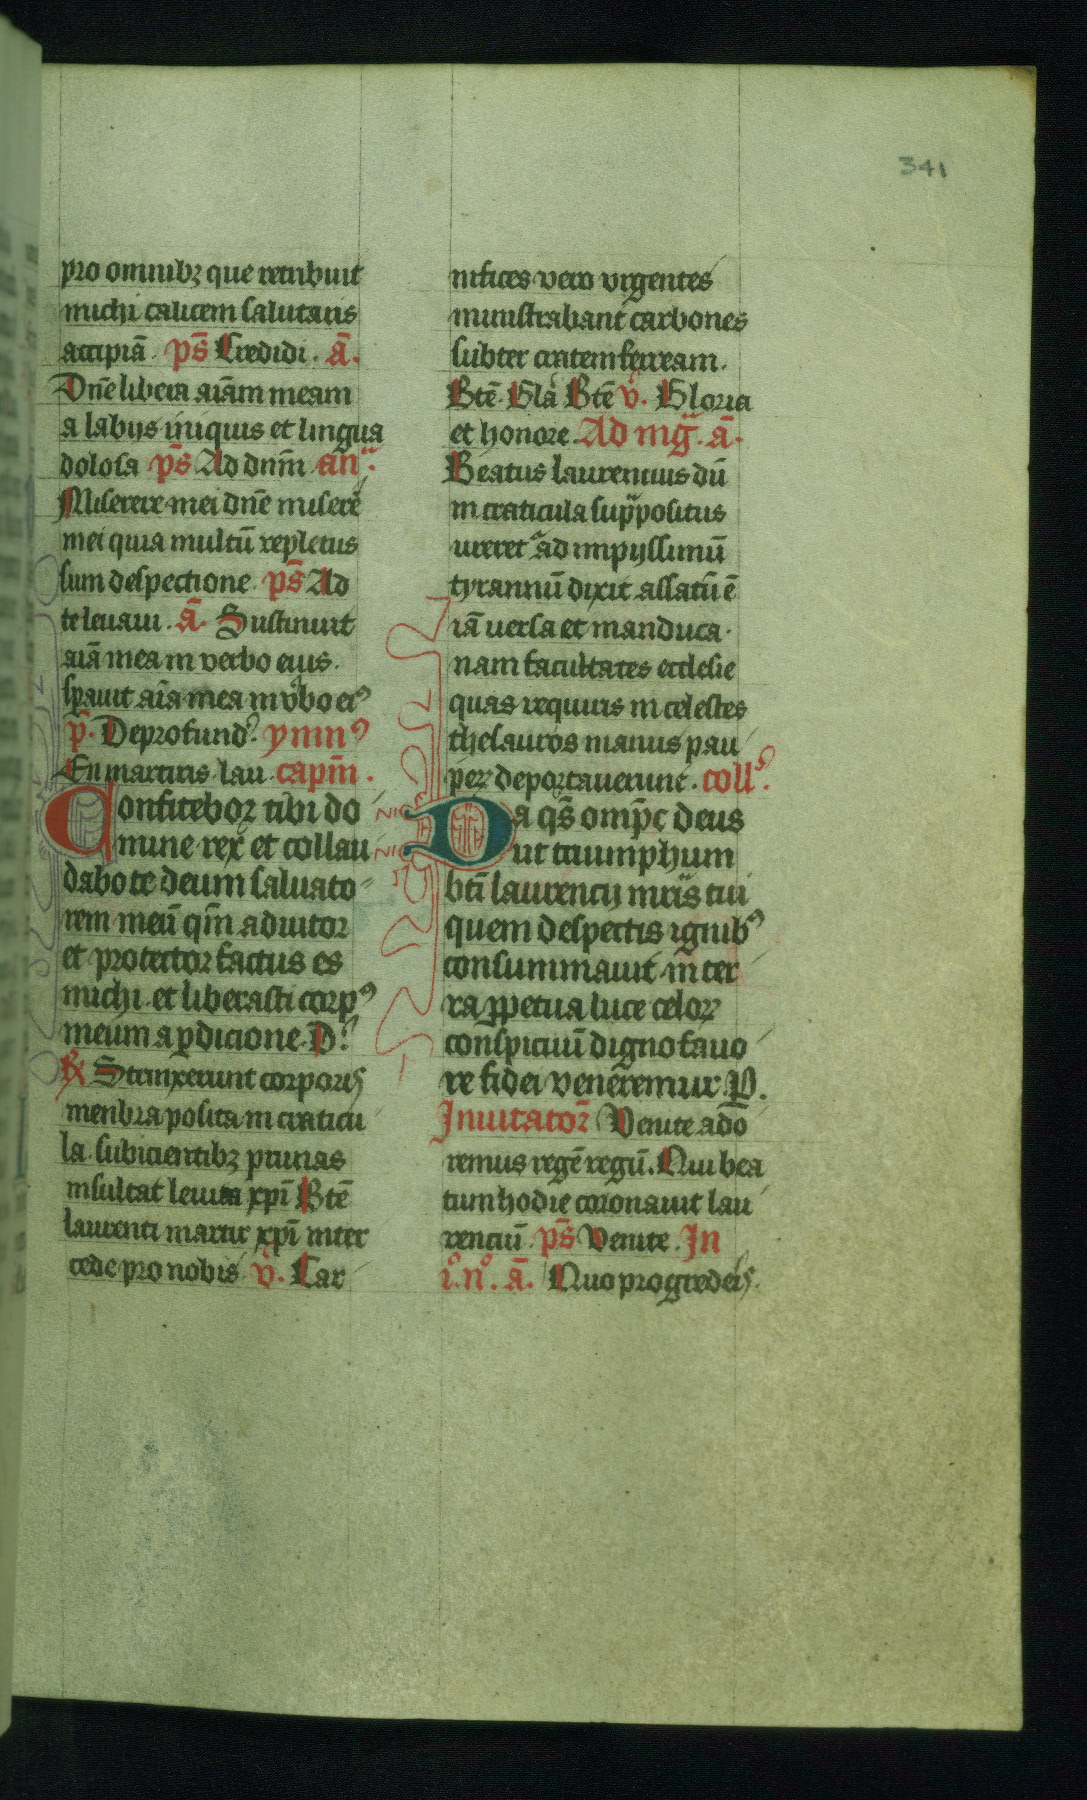 341
pro omnibꝫ que retribuit
michi calicem salutaris
accipiā. ps̄ Credidi. ā.
Dn̄e libera aīam meam
a labijs iniquis et lingua
dolosa ps̄ Ad dnm̄ an̄
Miserere mei dn̄e miserē
mei quia multū repletus
sum despectione. ps̄ Ad
te leuaui. ā. Sustinuit
aīā mea in verbo eius.
spauit aīa mea in v̾bo eiꝰ
p̄. De profund̾. ymnꝰ
En martiris lau. capm̄.
Confitebor tibi do
mine rex et collau
dabo te deum saluato
rem meū qm̄ adiutor
et protector factus es
michi et liberasti corpꝰ
meum a ꝑdicione. D̾.
℟ Strinxerunt corporis
menbra posita in craticu
la. subicientibꝫ prunas
insultat leuita xp̄i Btē
laurenti martir xp̄i inter
cede pro nobis. v̾. Car
nifices vero vrgentes
ministrabant carbones
subter cratem ferream.
Btē. Gla Btē v̾. Gloria
et honore. Ad mḡ. ā.
Beatus laurencius dū
in craticula suppositus
ureret̾ ad impijssimū
tyrannū dixit assatū ē
iā uersa et manduca.
nam facultates ecclesie
quas requiris in celestes
thesauros manus pau
peꝝ deportauerunt. coll̾.
Da qs̄ omp̄c deus
ut triumphum
bti laurencij mris tui
quem despectis ignibꝰ
consummauit in ter
ra ꝑpetua luce celoꝝ
conspicuū digno fauo
re fidei veneremur. P̲.
Inuitator̄ Venite ado
remus regē regū. Qui bea
tum hodie coronauit lau
renciū. ps̄ Venite. In
i.° n°. ā. Quo progrederis.